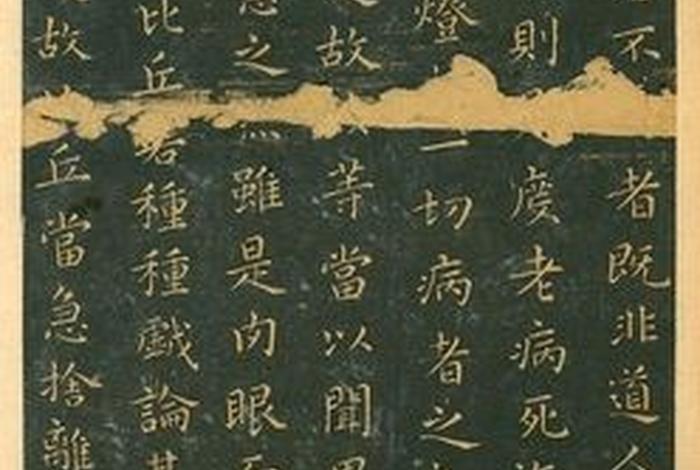 不者既非道
則度老病死
燈一切病者之
故等當以聞
之雖是肉眼
比丘若種種戲論
故丘當急捨離